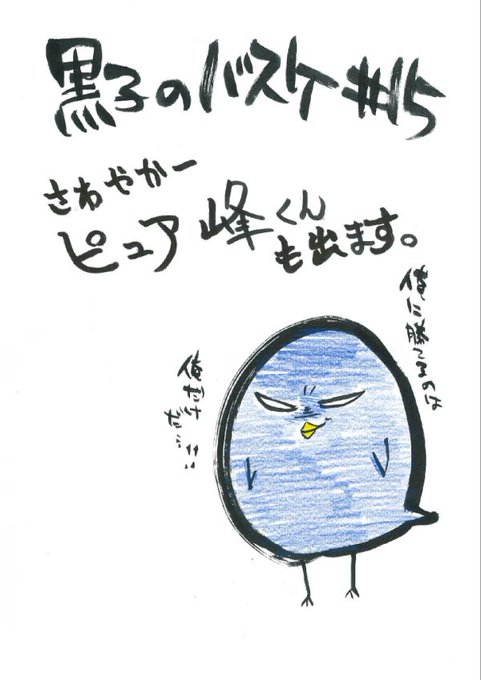 黒子のバスケ #15
さわやかー
ピュア峰くん
も出ます。
俺に勝てるのは
俺